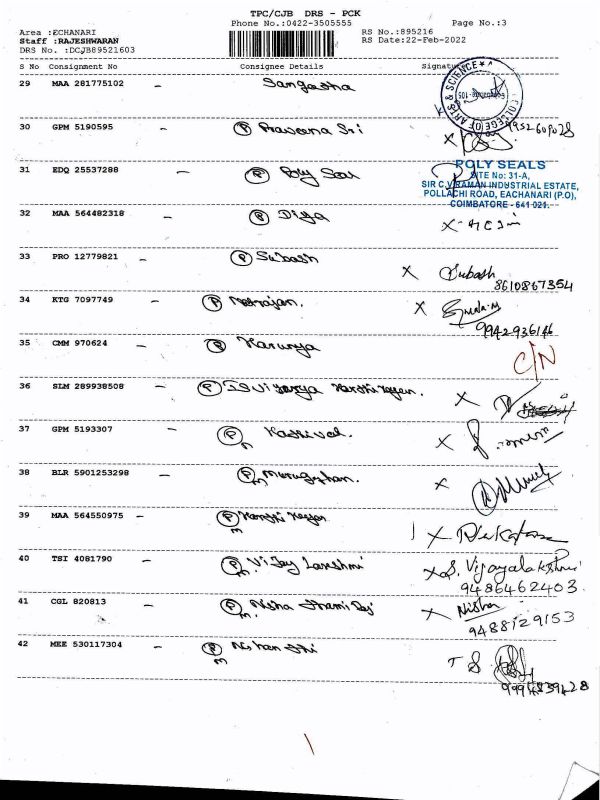 TPC/CJB DRS - PCK
Phone No.:0422-3505555 Page No.:3
Area :ECHANARI RS No.:895216
Staff :RAJESHWARAN RS Date:22-Feb-2022
DRS No. :DCJB89521603
S No Consignment No Consignee Details Signature
29 MAA 281775102 - Sangeetha
COLLEGE OF ARTS & SCIENCE
30 GPM 5190595 P Praveena Sri X
31 EDQ 25537288 - P Poly Seal
POLY SEALS
SITE No: 31-A,
SIR C.V.RAMAN INDUSTRIAL ESTATE,
POLLACHI ROAD, EACHANARI (P.O),
COIMBATORE - 641 021.
32 MAA 564482318 - P Divya X
33 PRO 12779821 - P Subash X Subash
8610867354
34 KTG 7097749 - P Natrajan. X
9942936146
35 CMM 970624 - P Karunya C/N
36 SLM 289938508 - P X
37 GPM 5193307 - P Kathirvel. X
38 BLR 5901253298 - P m X
39 MAA 564550975 - P m X
40 TSI 4081790 - P m Vijay Lakshmi X S. Vijayalakshmi
9486462403
41 CGL 820813 - P m Nisha X Nisha
9488129153
42 MEE 530117304 - P m